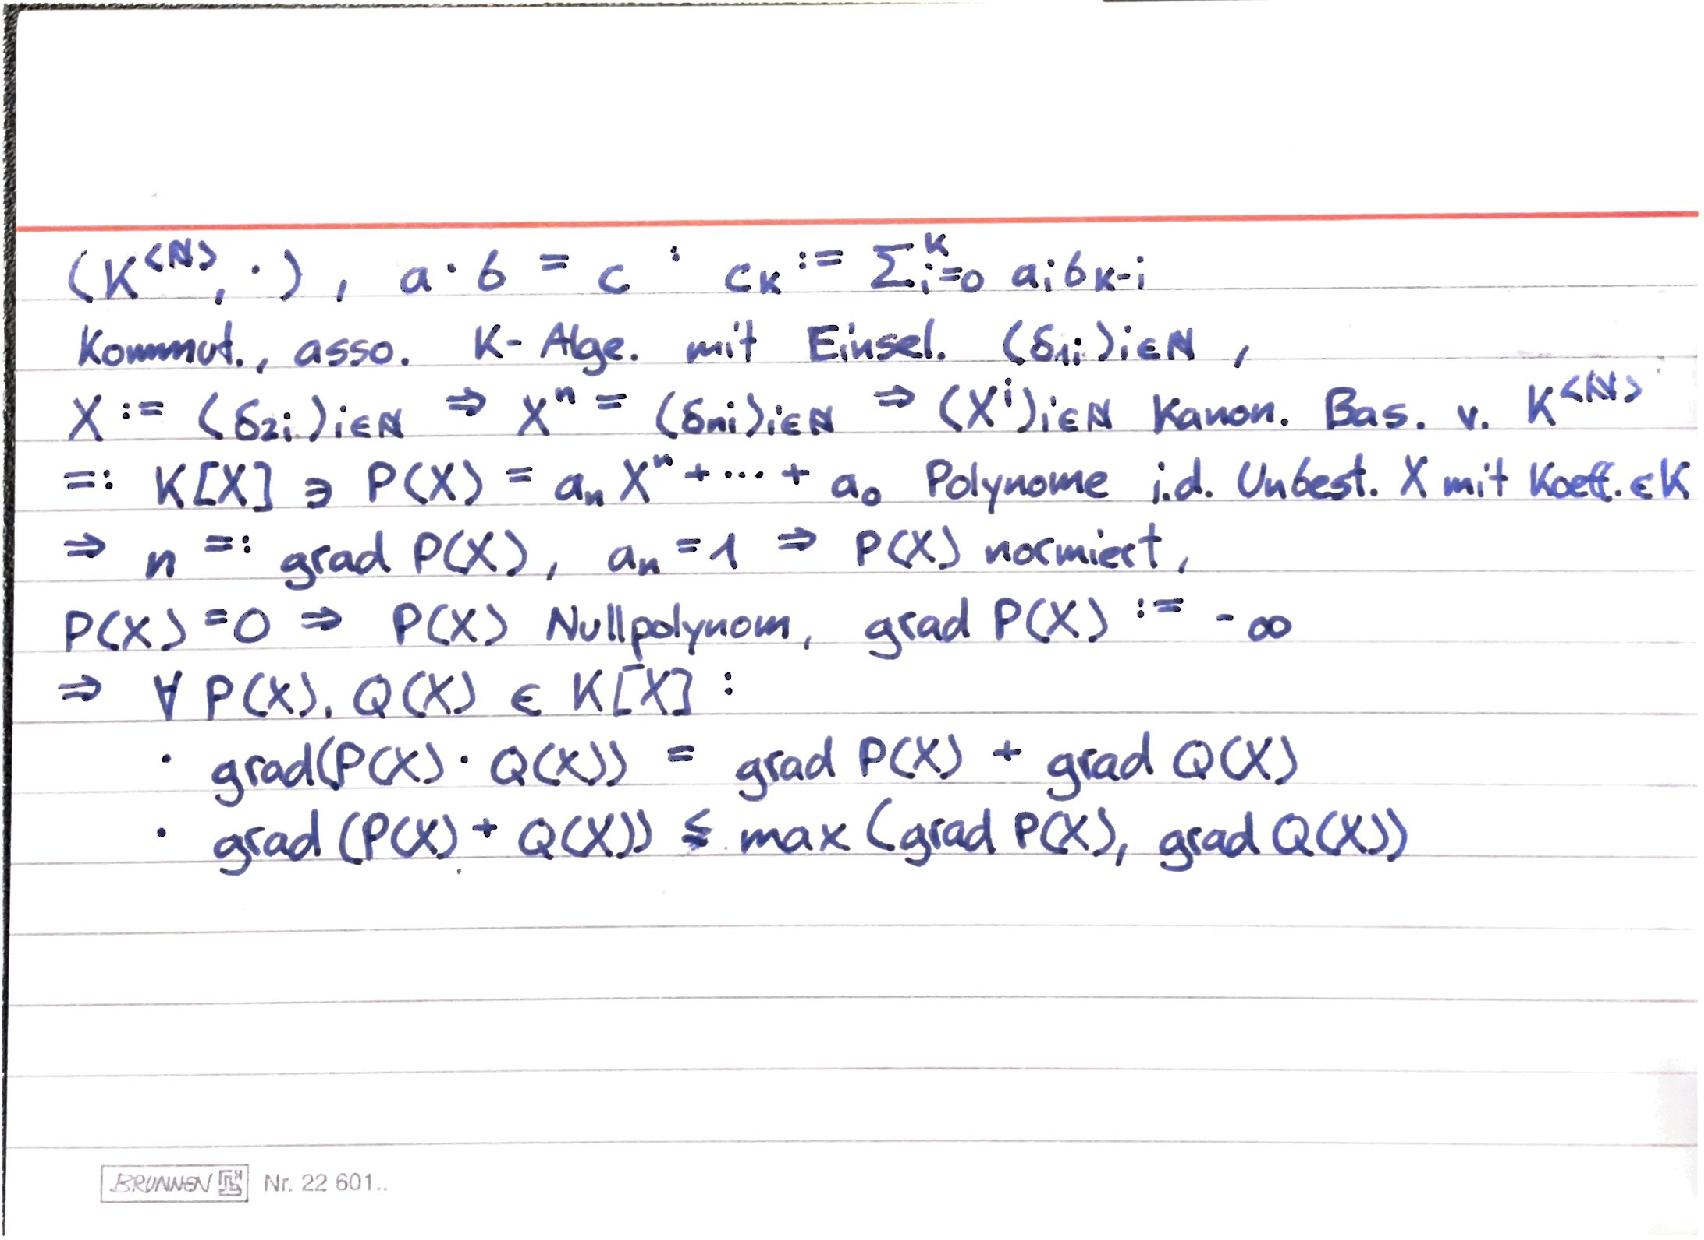 (K^⟨ℕ⟩, ·), a·b = c : c_k := Σ_{i=0}^k a_i b_{k-i}
Kommut., asso. K-Alge. mit Einsel. (δ_{1i})_{i∈ℕ},
X := (δ_{2i})_{i∈ℕ} ⇒ X^n = (δ_{ni})_{i∈ℕ} ⇒ (X^i)_{i∈ℕ} kanon. Bas. v. K^⟨ℕ⟩
=: K[X] ∋ P(X) = a_n X^n + ... + a_0 Polynome i.d. Unbest. X mit Koeff. ∈ K
⇒ n =: grad P(X), a_n = 1 ⇒ P(X) normiert,
P(X) = 0 ⇒ P(X) Nullpolynom, grad P(X) := -∞
⇒ ∀ P(X), Q(X) ∈ K[X] :
· grad(P(X) · Q(X)) = grad P(X) + grad Q(X)
· grad (P(X) + Q(X)) ≤ max (grad P(X), grad Q(X))
BRUNNEN Nr. 22 601..